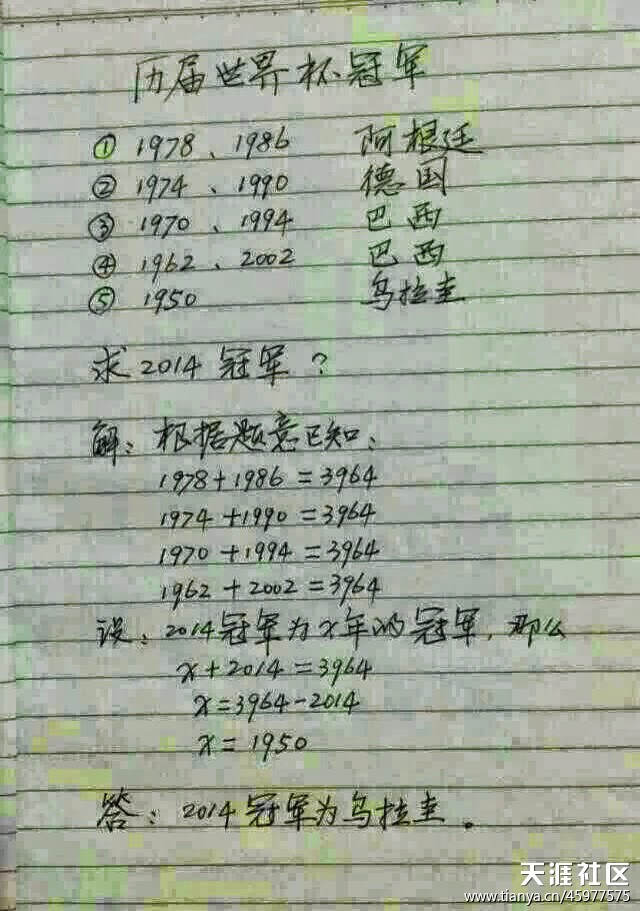 历届世界杯冠军
① 1978、1986 阿根廷
② 1974、1990 德国
③ 1970、1994 巴西
④ 1962、2002 巴西
⑤ 1950 乌拉圭
求2014冠军?
解:根据题意已知:
1978+1986=3964
1974+1990=3964
1970+1994=3964
1962+2002=3964
设:2014冠军为x年的冠军,那么
x+2014=3964
x=3964-2014
x=1950
答:2014冠军为乌拉圭。
天涯社区
www.tianya.cn/45977575